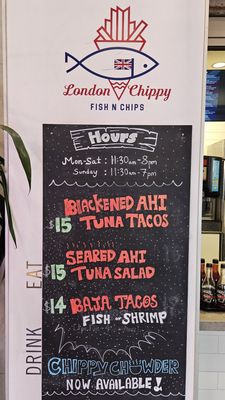 London Chippy
FISH N CHIPS
Hours
Mon-Sat: 11:30am-8pm
Sunday: 11:30am-7pm
BLACKENED AHI
$15 TUNA TACOS
SEARED AHI
$15 TUNA SALAD
$14 BAJA TACOS
FISH - SHRIMP
CHIPPY CHOWDER
NOW AVAILABLE!
DRINK EAT